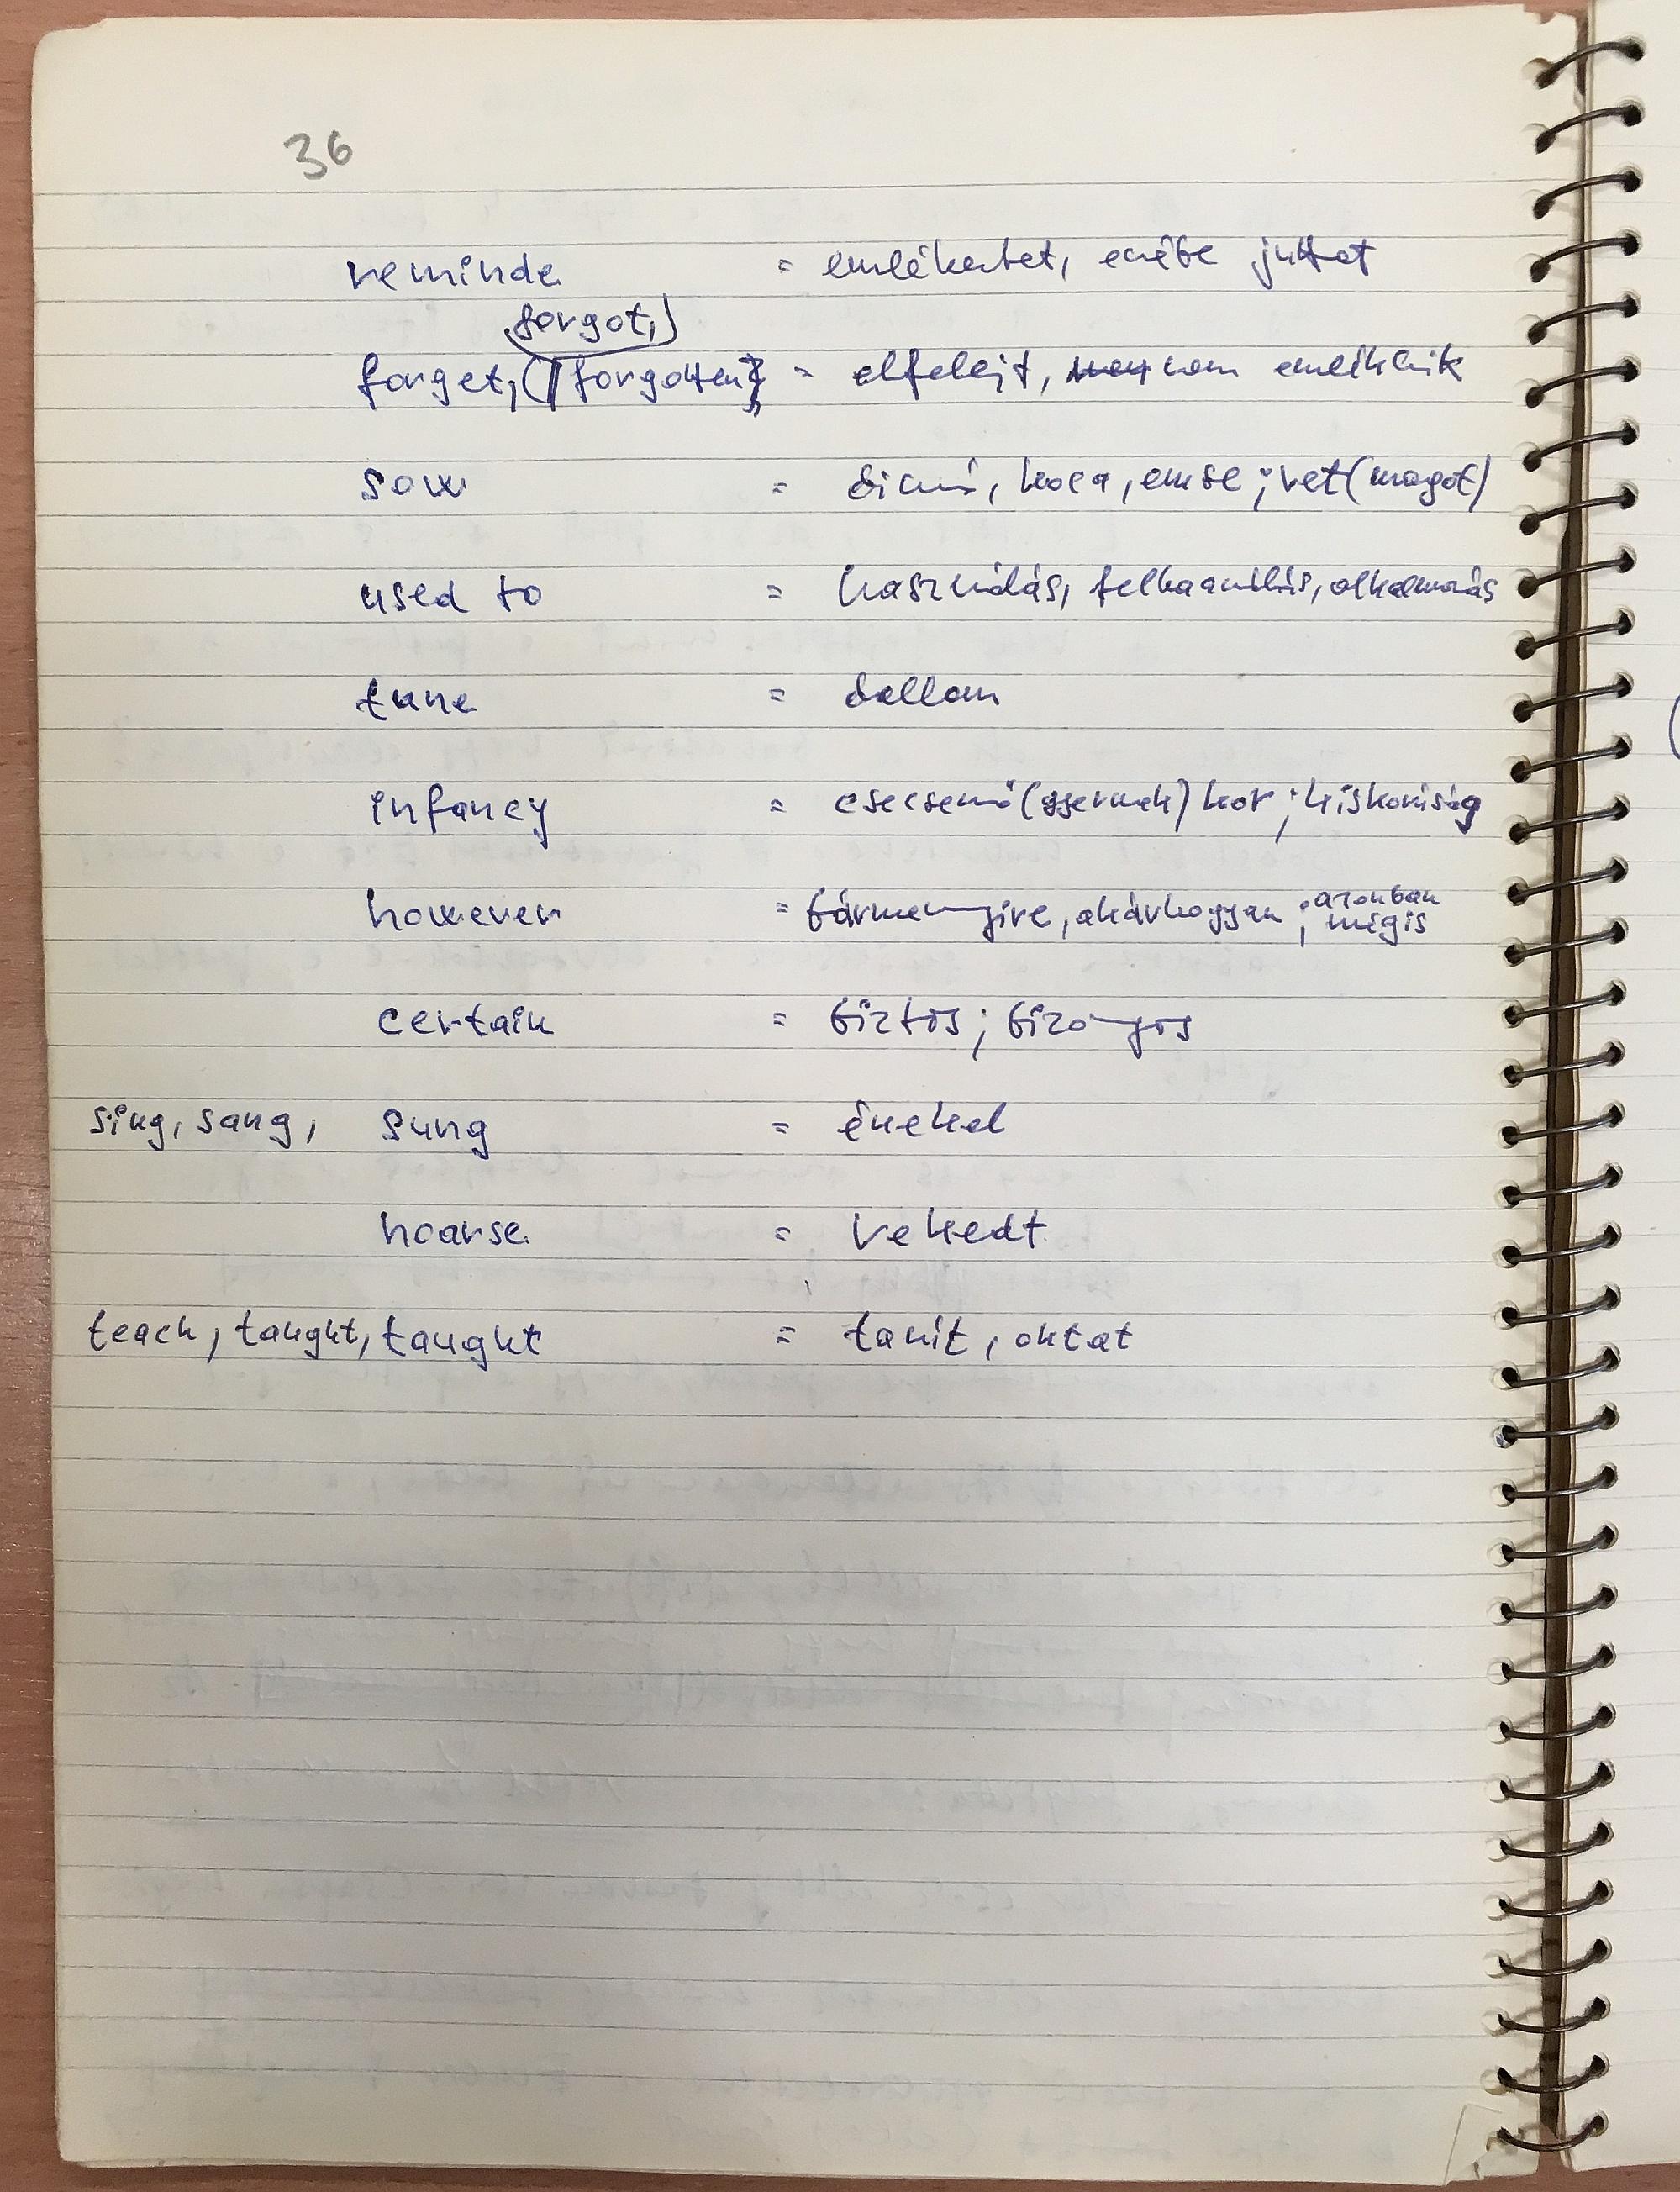 36
reminde = emlékeztet, eszébe juttat
forgot,
forget, (forgotten) = elfelejt, nem emlékszik
sow = disznó, koca, emse; vet (magot)
used to = használás, felhasználás, alkalmazás
tune = dallam
infancy = csecsemő (gyermek) kor; kiskorúság
however = bármennyire, akárhogyan; azonban
mégis
certain = biztos; bizonyos
sing, sang, sung = énekel
hoarse = rekedt
teach, taught, taught = tanít, oktat